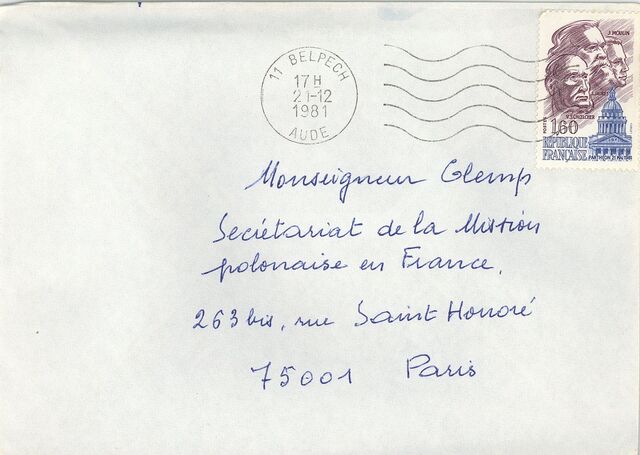 11 BELPECH
17 H
21-12
1981
AUDE
J. MOULIN
J. JAURÈS
V. SCHŒLCHER
POSTES 1,60
RÉPUBLIQUE
FRANÇAISE
PANTHÉON 21 MAI 1981
Monseigneur Glemp
Secrétariat de la Mission
polonaise en France,
263 bis, rue Saint Honoré
75001 Paris